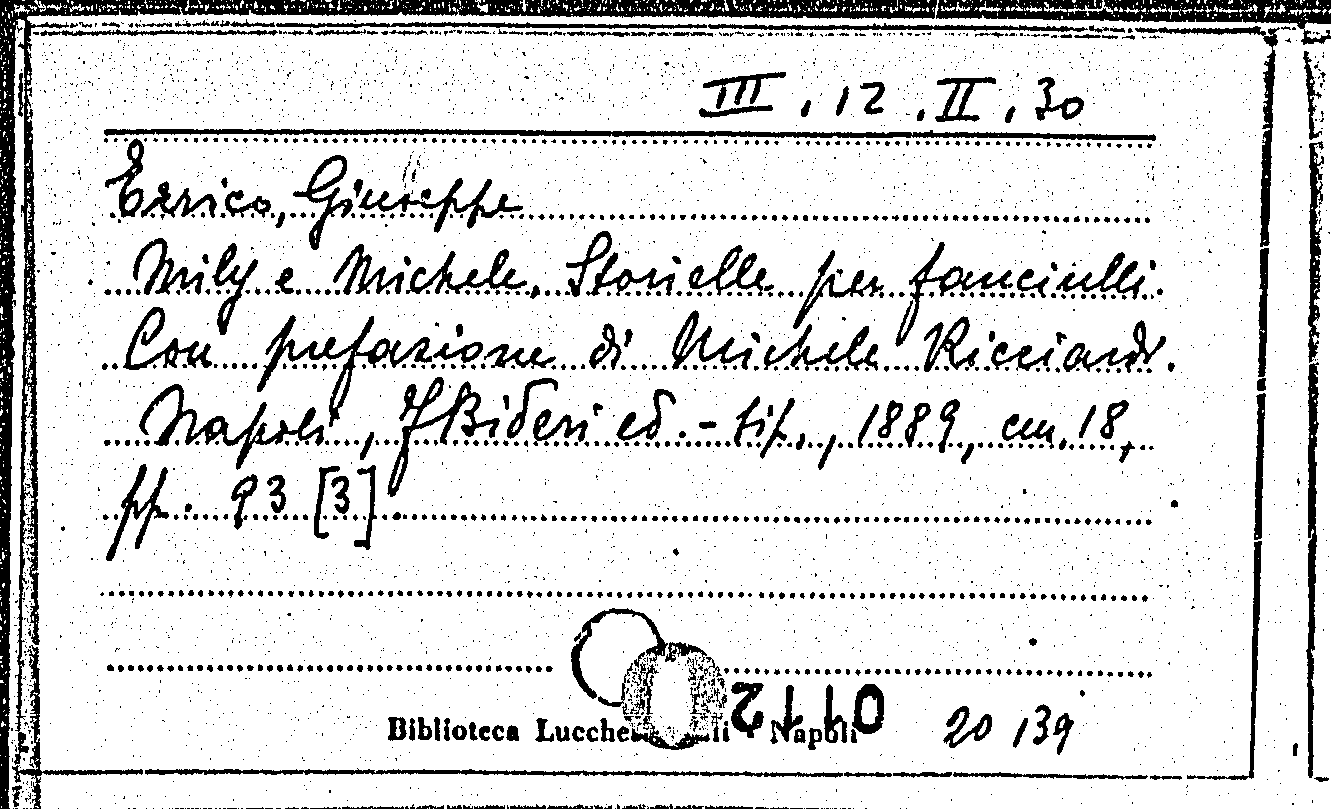 III.12.II.30
Errico, Giuseppe
Mily e Michele. Storielle per fanciulli.
Con prefazione di Michele Ricciardi.
Napoli, F Bideri ed.-tip., 1889, cm. 18,
pp. 93 [3].
Biblioteca Napoli
0112
20 139